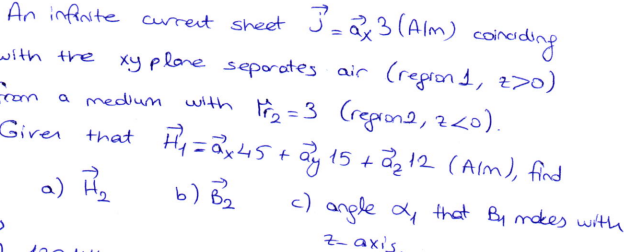 An infinite current sheet J⃗ = a⃗x 3 (A/m) coinciding
with the xy plane separates air (region 1, z>0)
from a medium with μr2 = 3 (region 2, z<0).
Given that H⃗1 = a⃗x 45 + a⃗y 15 + a⃗z 12 (A/m), find
a) H⃗2 b) B⃗2 c) angle α1 that B1 makes with
z-axis.